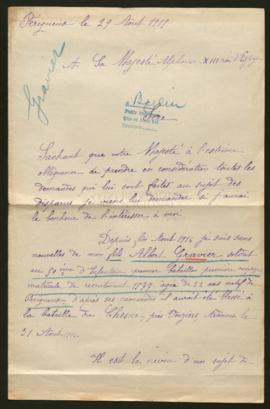 Périgueux le 29 Août 1915
A Sa Majesté Alphonse XIII roi d'Espagne
Gravier
Berlin
Sire
Sachant que votre Majesté à l'extrême
de prendre en considération toutes les
demandes qui lui sont faites au sujet des
disparus, je viens lui demander si j'aurai
le bonheur de l'intéresser à moi
Depuis le Août 1914 je suis sans
nouvelles de mon fils Albert Gravier soldat
au 50 d'Infanterie
matricule de recrutement 1577 âgé de 22 ans natif de
Périgueux d'après ses camarades il aurait été blessé à
la bataille du Chesne près Vouziers Ardennes le
31 Août
Il est le neveu d'un sujet de